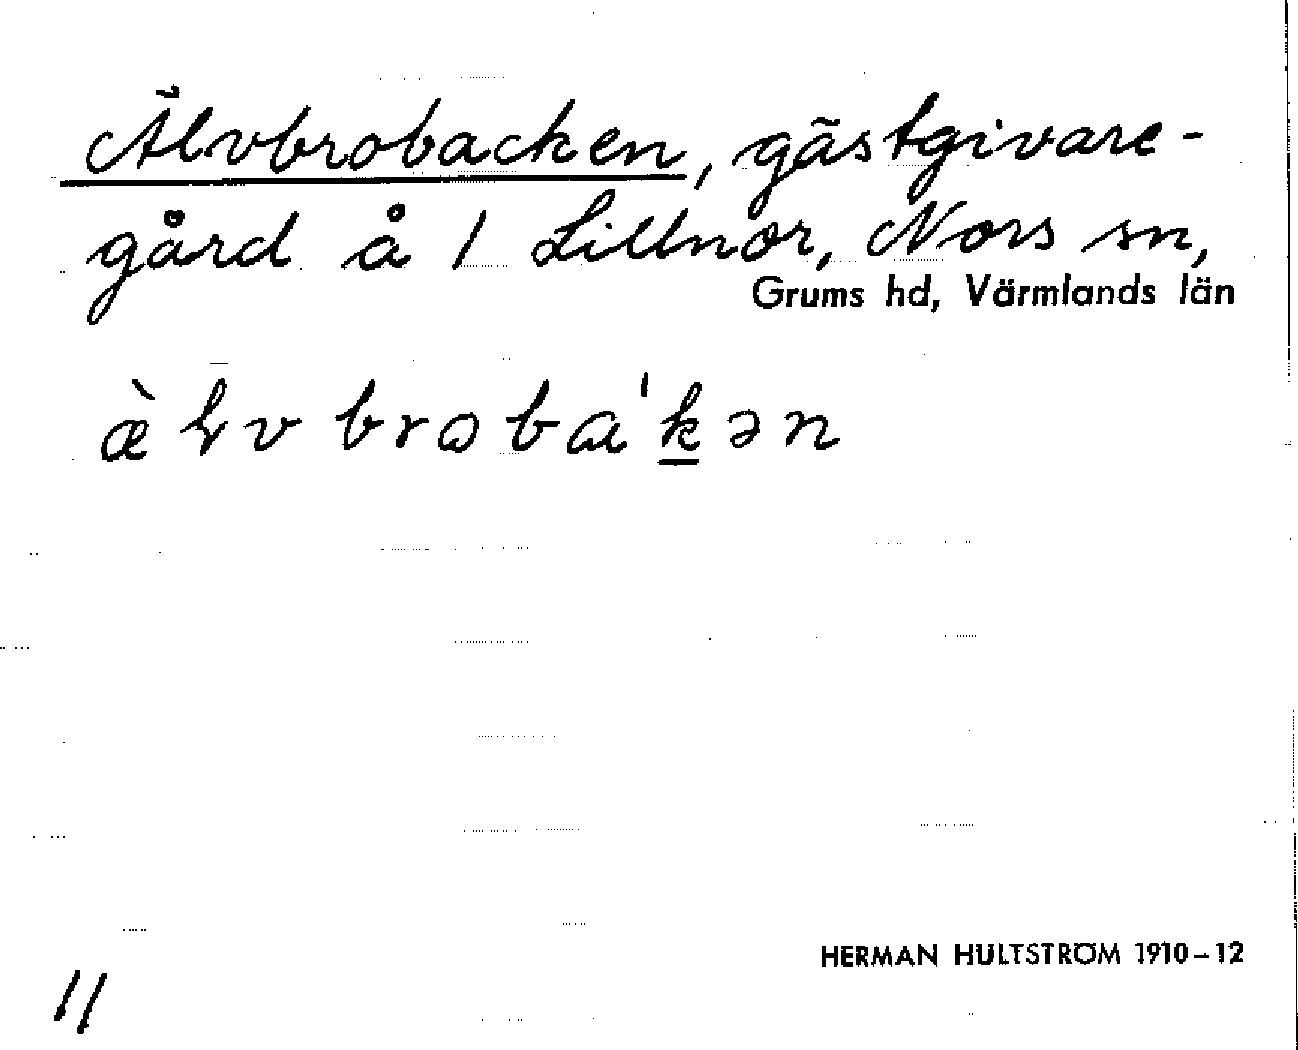 Älvbrobacken, gästgivare-
gård å 1 Lillnor, Nors sn,
Grums hd, Värmlands län
æ̀ɭv broba'k̲ən
HERMAN HULTSTRÖM 1910–12
11